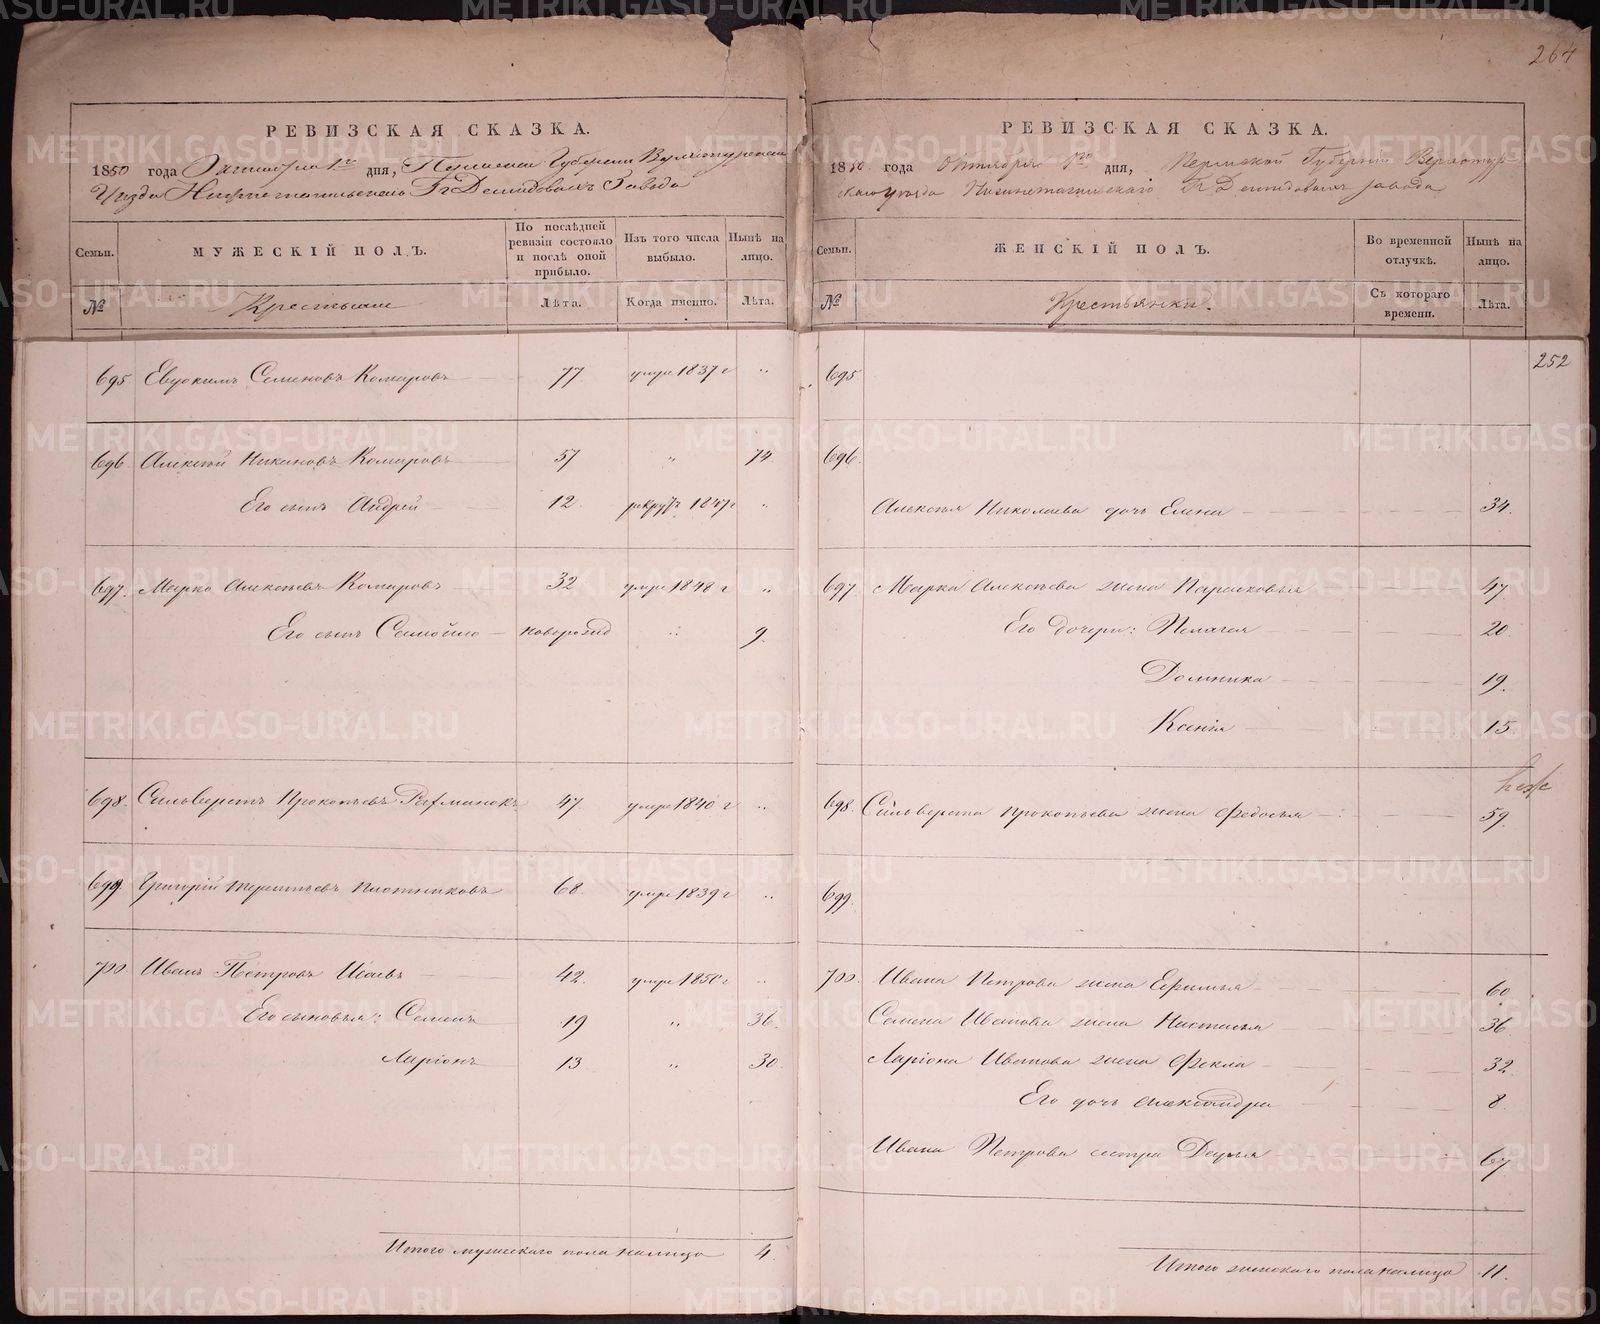 264
РЕВИЗСКАЯ СКАЗКА.
1850 года Октября 1го дня, Пермской Губернии Верхотурскаго
Уѣзда Нижнетагильскаго Гг Демидовыхъ Завода
Семьи. МУЖЕСКІЙ ПОЛЪ. По послѣдней ревизіи состояло и послѣ оной прибыло. Изъ того числа выбыло. Нынѣ на лицо.
№ Крестьяне Лѣта. Когда именно. Лѣта.
695 Евдокимъ Семеновъ Комаровъ 77 умре 1837 г "
696 Алексѣй Никоновъ Комаровъ 57 " 74.
Его сынъ Андрей 12. рекрутъ 1847 г "
697. Марко Алексѣевъ Комаровъ 32 умре 1848 г "
Его сынъ Самойло новорожд " 9.
698. Сильверстъ Прокопьевъ 47. умре 1840 г "
699. Григорій Терентьевъ Плотниковъ 68. умре 1839 г "
700. Иванъ Петровъ Исаевъ 42. умре 1850 г "
Его сыновья: Семенъ 19 " 36.
Ларіонъ 13 " 30.
Итого мужескаго пола налицо 4.
РЕВИЗСКАЯ СКАЗКА.
1850 года Октября 1го дня, Пермской Губерніи Верхотур-
скаго уѣзда Нижнетагильскаго Гг Демидовыхъ завода
Семьи. ЖЕНСКІЙ ПОЛЪ. Во временной отлучкѣ. Нынѣ на лицо.
№ Крестьянки. Съ котораго времени. Лѣта.
252
695
696.
Алексѣя Николаева дочь Елена 34.
697 Марка Алексѣева жена Парасковья 47.
Его дочери: Пелагея 20.
Домника 19.
Ксенія 15.
698. Сильверста Прокопьева жена Федосья 59.
699.
700. Ивана Петрова жена Ефимья 60.
Семена Иванова жена Настасья 36.
Ларіона Иванова жена Фекла 32.
Его дочь Александра 8.
Ивана Петрова сестра Дарья 67.
Итого женскаго пола налицо 11.
METRIKI.GASO-URAL.RU